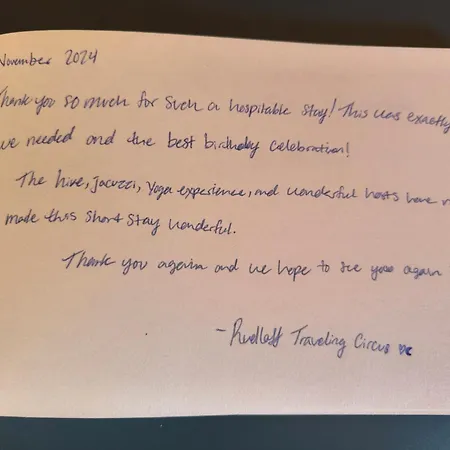 November 2024
Thank you so much for such a hospitable stay! This was exactly
we needed and the best birthday celebration!
The hive, jacuzzi, yoga experience, and wonderful hosts have
made this short stay wonderful.
Thank you again and we hope to see you again
- Traveling Circus